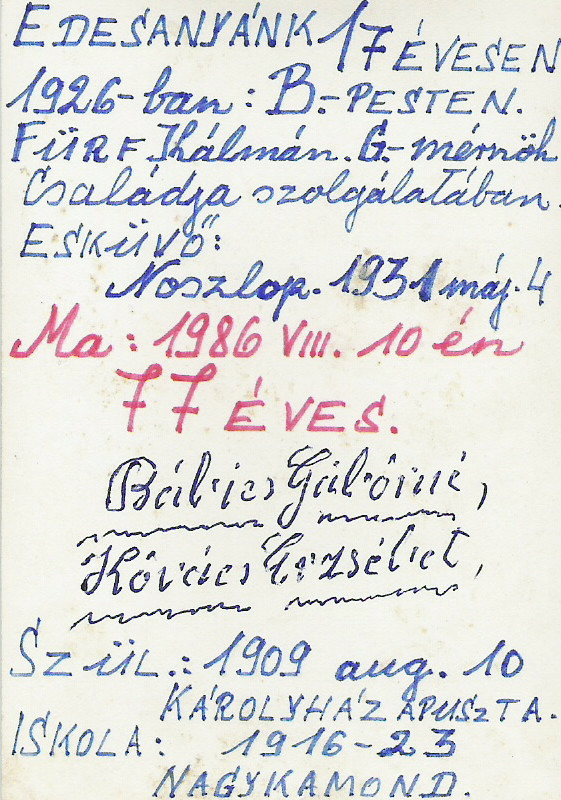 EDESANYÁNK 17 ÉVESEN
1926-ban: B.-PESTEN.
FÜRF Kálmán. G.-mérnök
Családja szolgálatában.
ESKÜVŐ:
Noszlop. 1931 máj. 4
Ma: 1986 VIII. 10 én
77 ÉVES.
Bábics Gáborné,
Kovács Erzsébet,
SZÜL.: 1909 aug. 10
KÁROLYHÁZAPUSZTA.
ISKOLA: 1916-23
NAGYKAMOND.